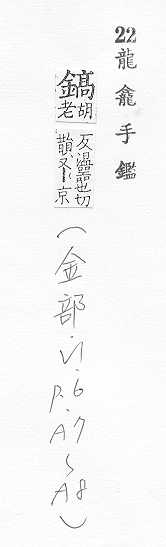 22龍龕手鑑
鎬胡老反溫器也切韻又丨京
(金部.V1.P.6.A7〜A8)